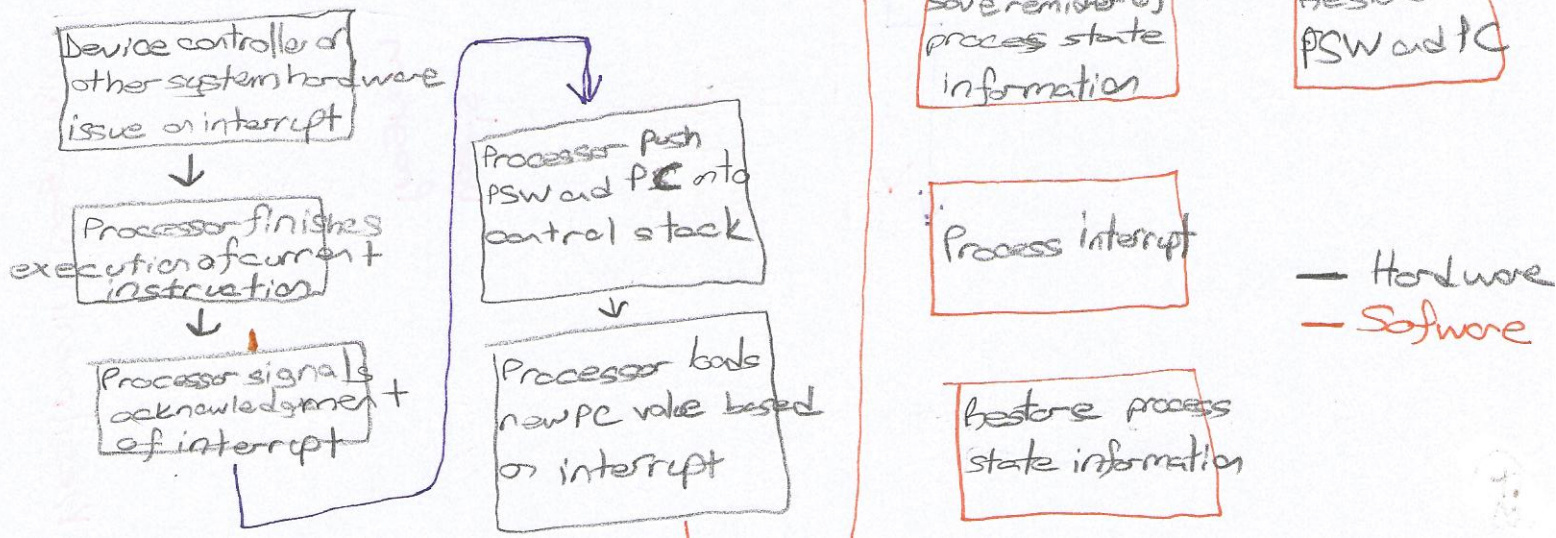 Device controller or
other system hardware
issue an interrupt
Processor finishes
execution of current
instruction
Processor signals
acknowledgment
of interrupt
Processor push
PSW and PC onto
control stack
Processor loads
new PC value based
on interrupt
process state
information
Process interrupt
Restore process
state information
PSW and PC
Hardware
Sofware